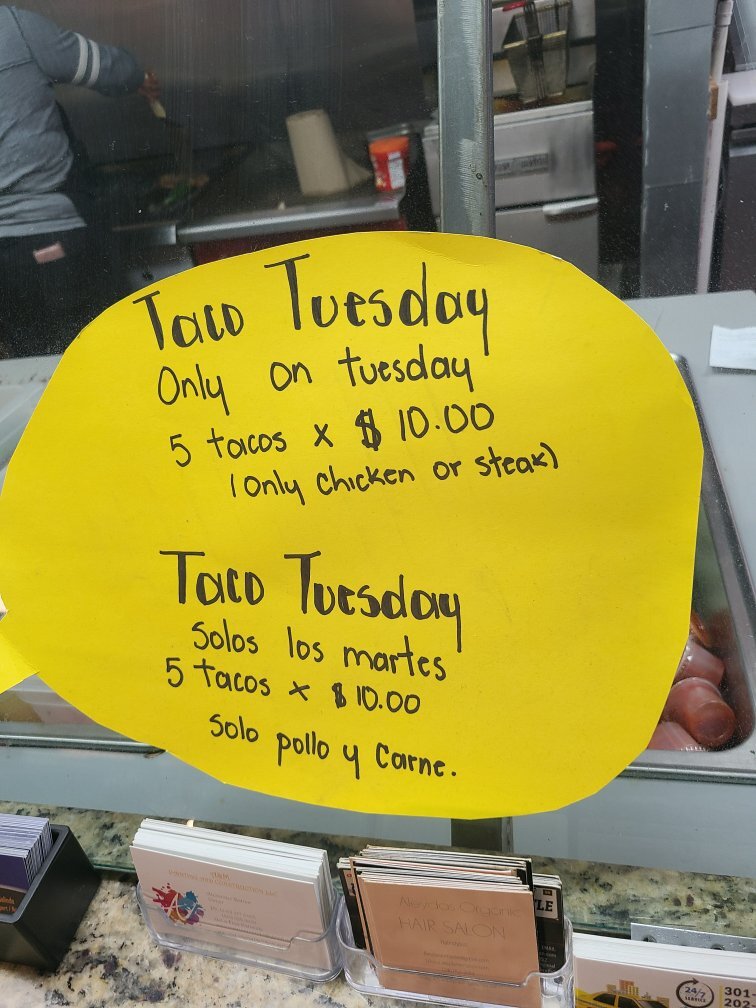 Taco Tuesday
Only on tuesday
5 tacos x $ 10.00
(only chicken or steak)
Taco Tuesday
Solos los martes
5 tacos x $ 10.00
Solo pollo y Carne.
HAIR SALON
24/7
SERVICE
301